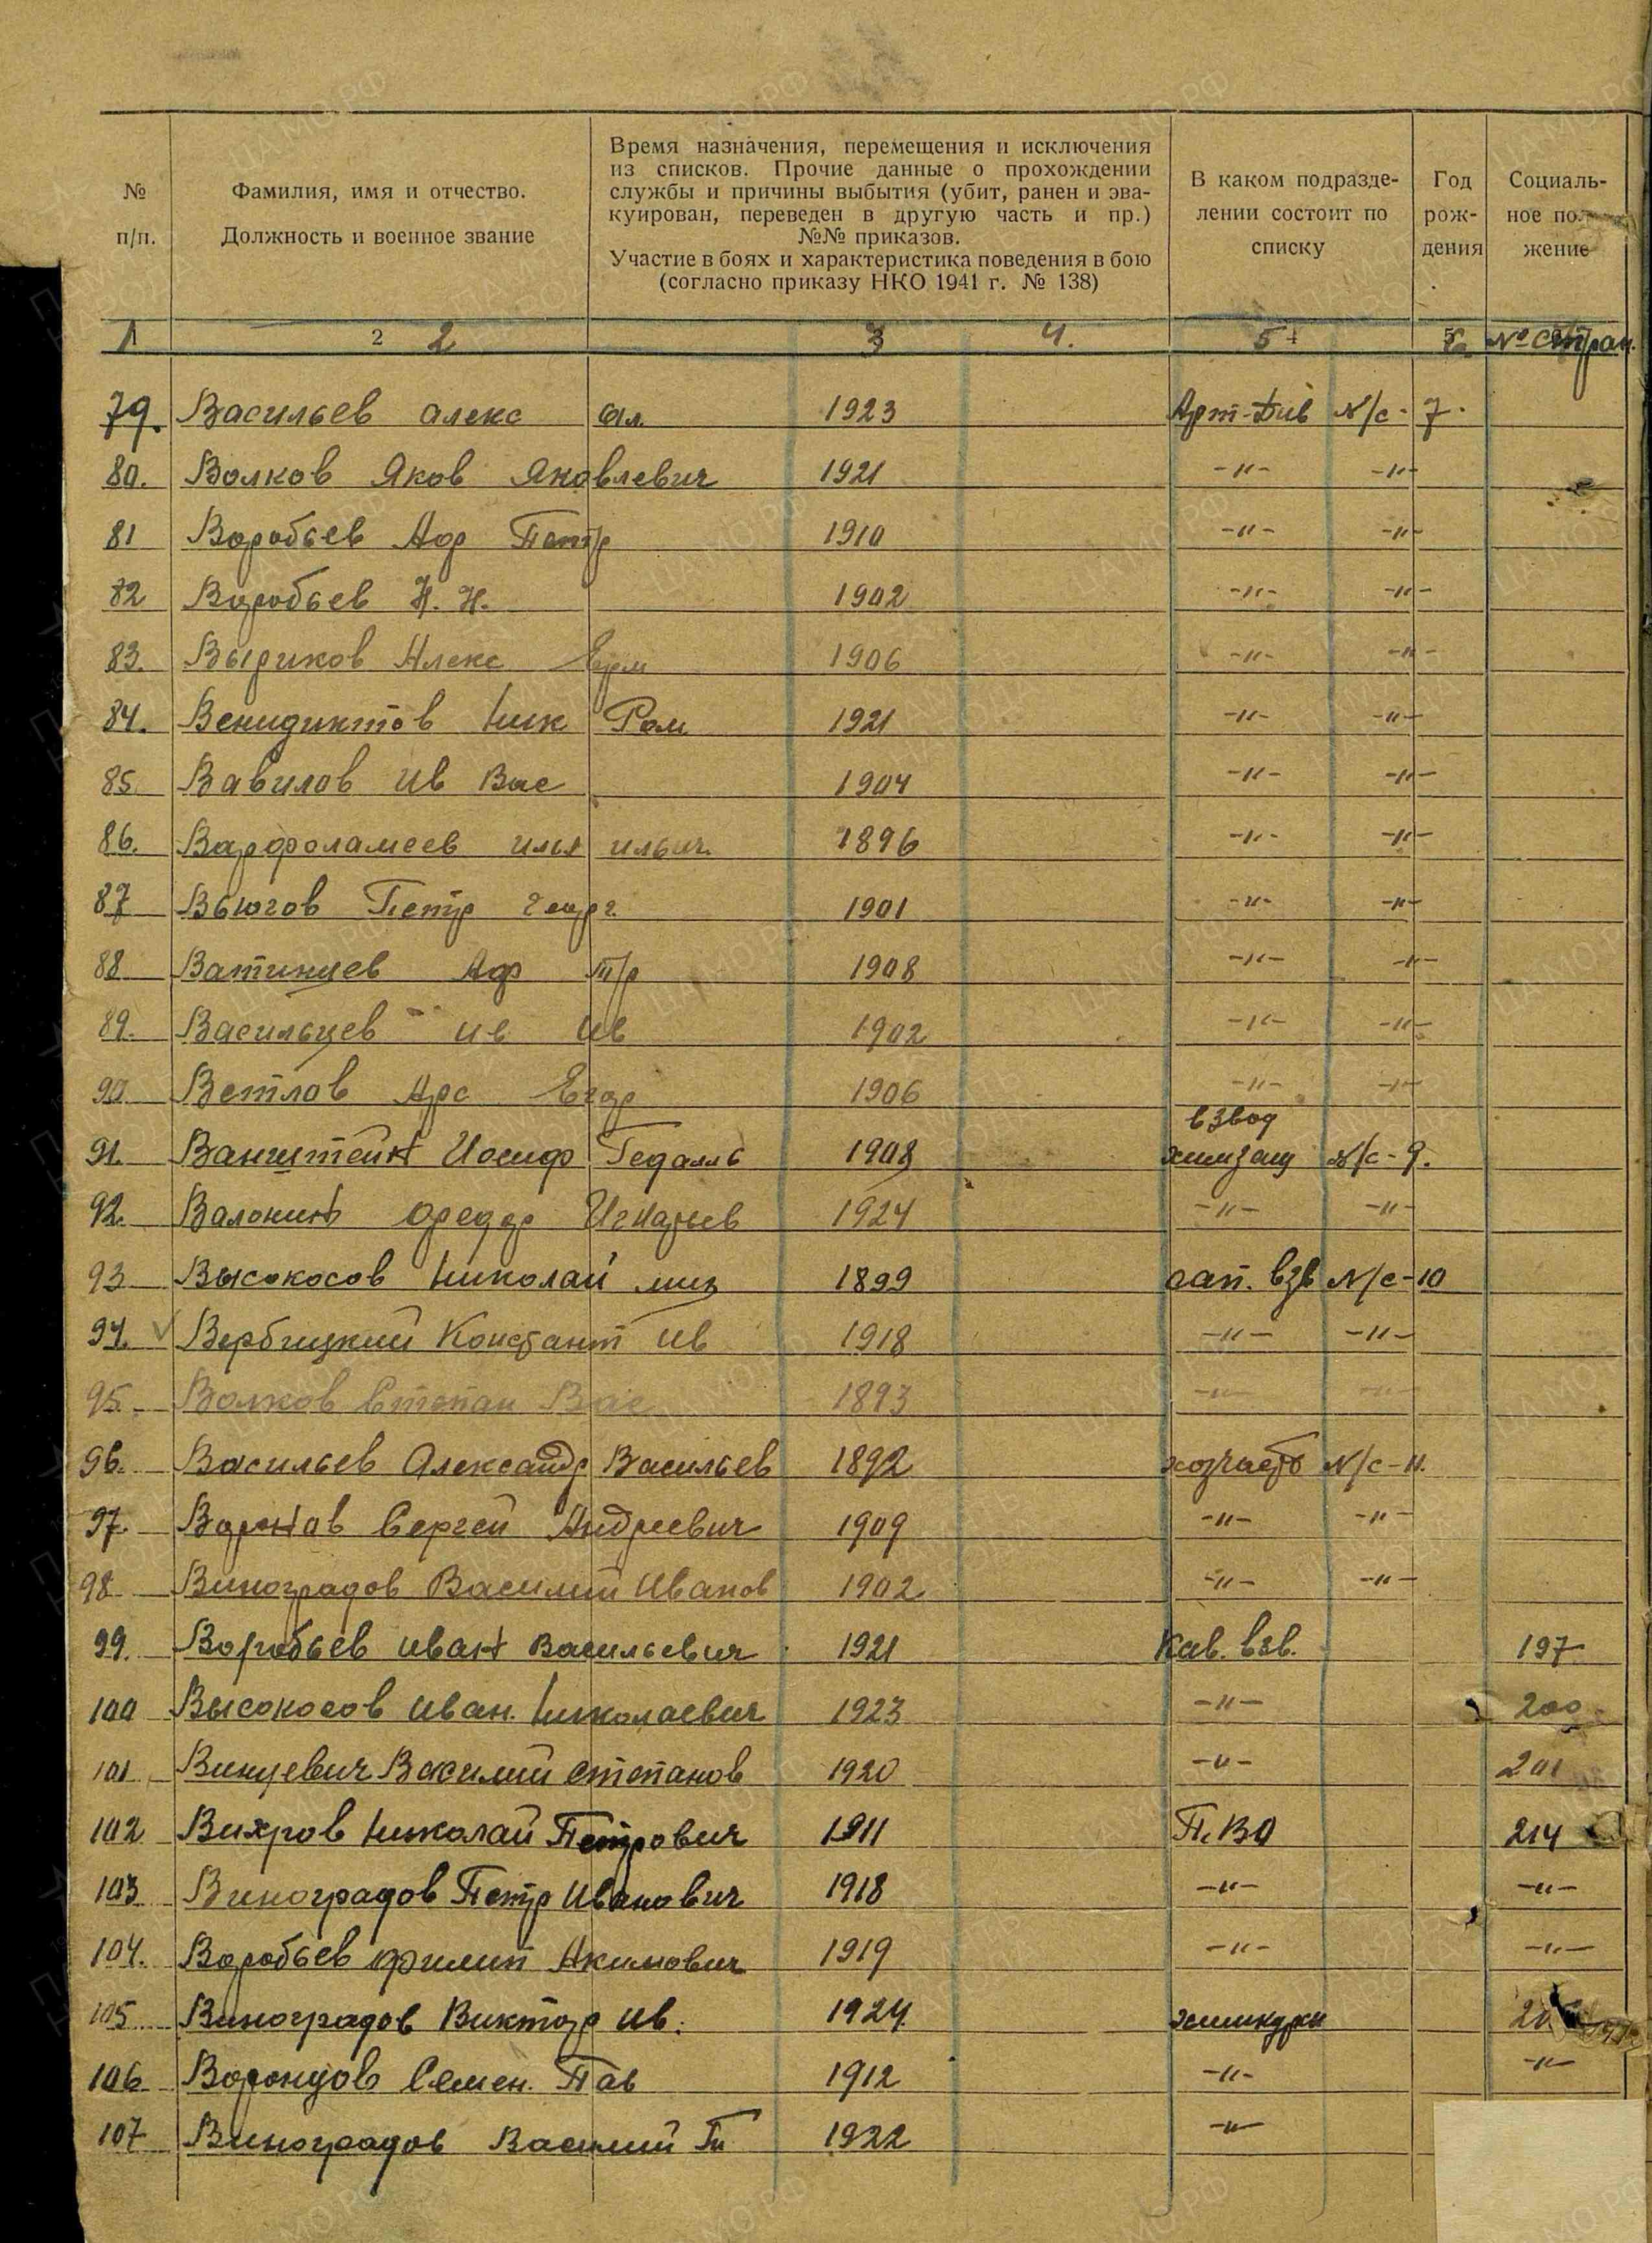 № п/п.
Фамилия, имя и отчество.
Должность и военное звание
Время назначения, перемещения и исключения
из списков. Прочие данные о прохождении
службы и причины выбытия (убит, ранен и эва-
куирован, переведен в другую часть и пр.)
№№ приказов.
Участие в боях и характеристика поведения в бою
(согласно приказу НКО 1941 г. № 138)
В каком подразде-
лении состоит по
списку
Год
рож-
дения
Социаль-
ное по-
жение
1 2 2 3 4. 5 № стран.
79. Васильев Алекс Ал. 1923 Арт-Див № л/с - 7.
80. Волков Яков Яковлевич 1921 -"- -"-
81 Воробьев Петр 1910 -"- -"-
82 Воробьев Н. Н. 1902 -"- -"-
83. Алекс 1906 -"- -"-
84. Венидиктов Ник Ром 1921 -"- -"-
85. Вавилов Ив Вас 1904 -"- -"-
86. Варфоламеев Илья Ильич. 1896 -"- -"-
87 Вьюгов Петр Георг. 1901 -"- -"-
88 Ватинцев 1908 -"- -"-
89. Васильцев Ив Ив 1902 -"- -"-
90. Ветлов Арс Егор 1906 -"- -"-
взвод
91. Ванштейн Иосиф Гедалль 1908 химзащ N/с - 9.
92. Валонин Федор Игнатьев 1924 -"- -"-
93 Высокосов Николай Мих 1899 сап. взв N/с - 10
94. Вербицкий Констант Ив 1918 -"- -"-
95. Волков Степан Вас 1893 -"- -"-
96. Васильев Александр Васильев 1892 хозчасть N/с - 11.
97. Воронов Сергей Андреевич 1909 -"- -"-
98 Виноградов Василий Иванов 1902 -"- -"-
99. Воробьев Иван Васильевич 1921 Кав. взв. 197
100 Высокосов Иван. Николаевич 1923 -"- 200
101 Винцевич Василий Степанов 1920 -"- 201
102 Вихров Николай Петрович 1911 П.ВО 214
103 Виноградов Петр Иванович 1918 -"- -"-
104. Воробьев Филип Акимович 1919 -"- -"-
105 Виноградов Виктор Ив. 1924
106 Воронцов Семен. Пав 1912 -"- -"-
107 Виноградов Василий 1922 -"-